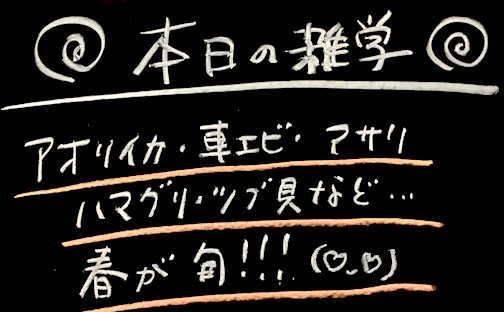 本日の雑学
アオリイカ・車エビ・アサリ
ハマグリ・ツブ貝など…
春が旬!!!(♡_♡)